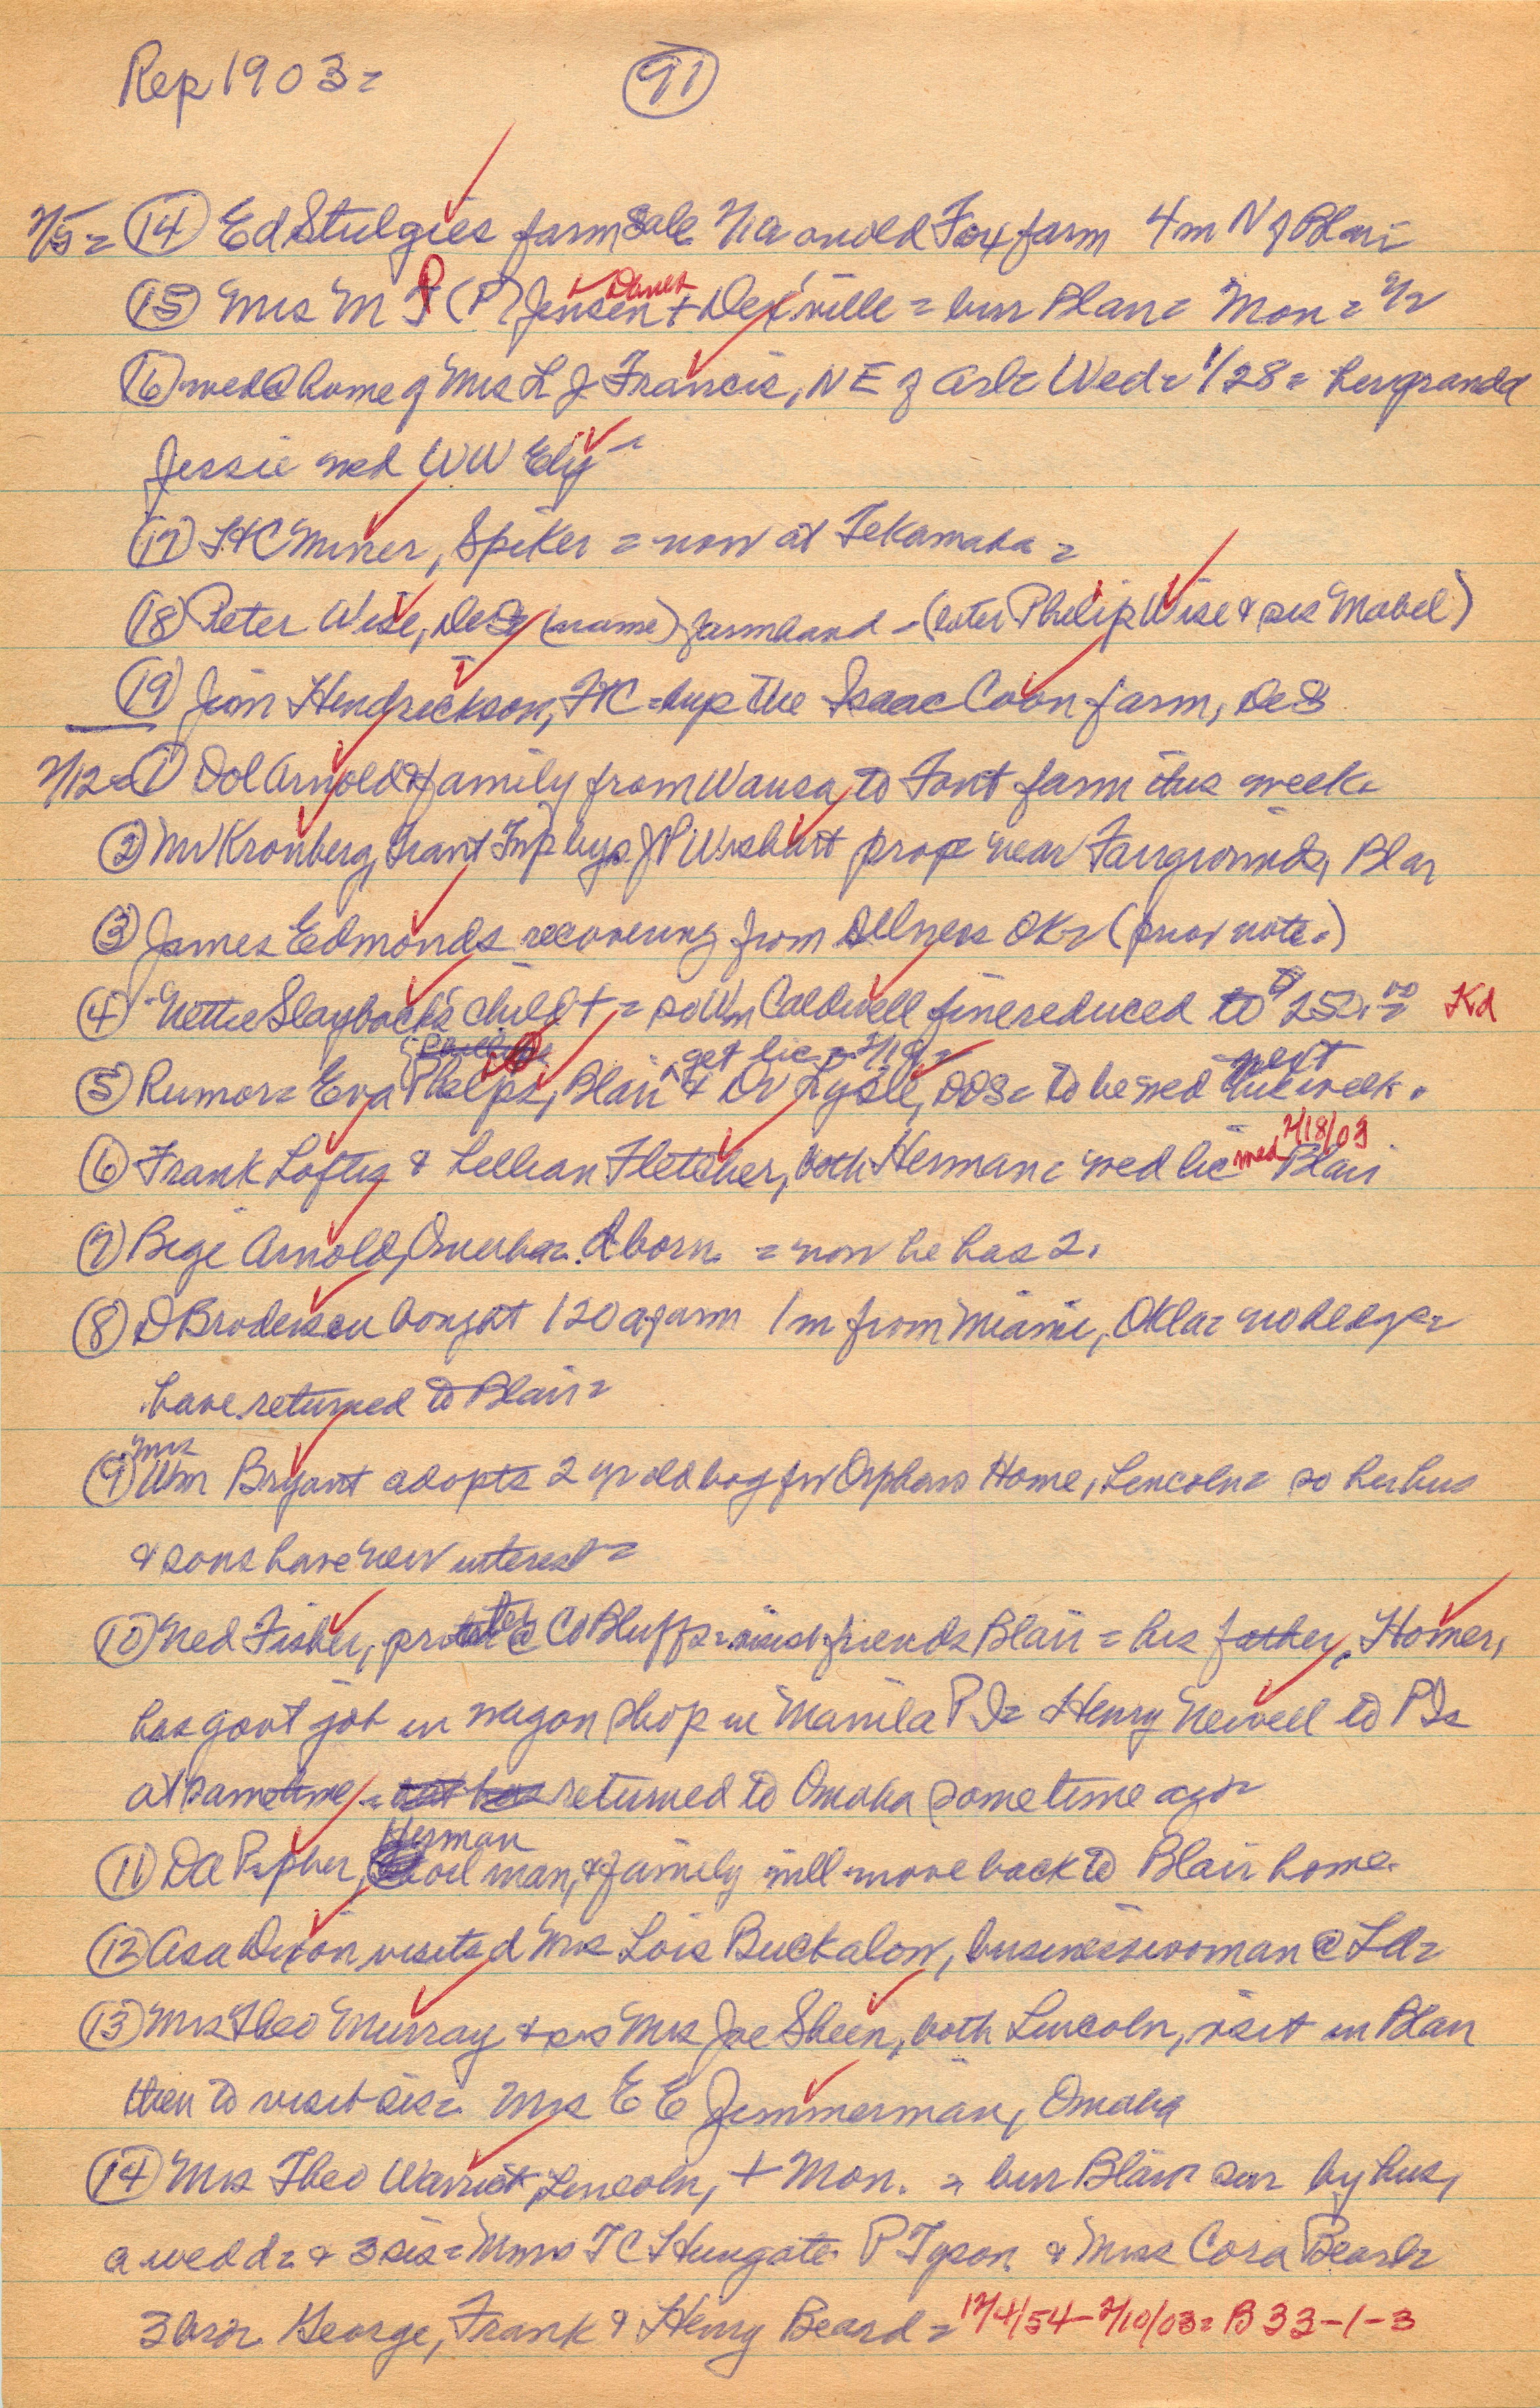 Rep 1903= 91
2/5= 14 Ed Stulgies farm Sale on old Fox farm 4m N of Blair
15 Mrs M P (P) Jensen + Danes DeS'ville = bur Blair= Mon= 2/2
16 wed @ home of Mrs L J Francis, NE of Arl= Wed= 1/28= her grandd
Jessie wed WW Ely=
17 HC Miner, Spiker = now at Tekamah=
18 Peter Wise, DeS, (name) farmhand - (later Philip Wise & sis Mabel)
19 Jim Hendrickson, FtC= buys the Isaac Coon farm, DeS
2/12= 1 Dol Arnold & family from Wausa to Font farm this week=
2 Mr Kronberg, Grant Twp buys JP Wishart prop near Fairgrounds, Blair
3 James Edmonds recovering from illness OK= (prior note.)
4 Nettie Slayback's child + = so Wm Caldwell fine reduced to 250.00= Kd
5 Rumor= Eva Phelps, Blair get lic= 2/19= & Dr Lyşle, DDS= to be wed next week.
6 Frank Loftis & Lillian Fletcher, both Herman= wed lic wed 2/18/03 Blair
7 Bege Arnold, Omaha= d born = now he has 2.
8 D Brodersen bought 120 a farm 1m from Miami, Okla=
have returned to Blair=
9 Mrs Wm Bryant adopts 2 yr old boy fr Orphans Home, Lincoln= so her hus
& sons have new interest=
10 Ned Fisher, @ Co Bluffs= visits friends Blair = his father, Homer,
has govt job in wagon shop in Manila PI= Henry Newell to PI=
at same time= returned to Omaha some time ago=
11 DA Pipher, Herman oil man, & family will move back to Blair home.
12 Asa Dixon visited Mrs Lois Buckalow, businesswoman @
13 Mrs Theo Murray & sis Mrs Joe Sheen, both Lincoln, visit in Blair
then to visit sis= Mrs E E Jimmerman, Omaha
14 Mrs Theo Warrick, Lincoln, + Mon. = bur Blair= sur by hus,
a wed d= & 3 sis= Mmes TC Hungate P Tyson & Miss Cora Beard=
3 bro= George, Frank & Henry Beard= 12/4/54-2/10/03= B 33-1-3